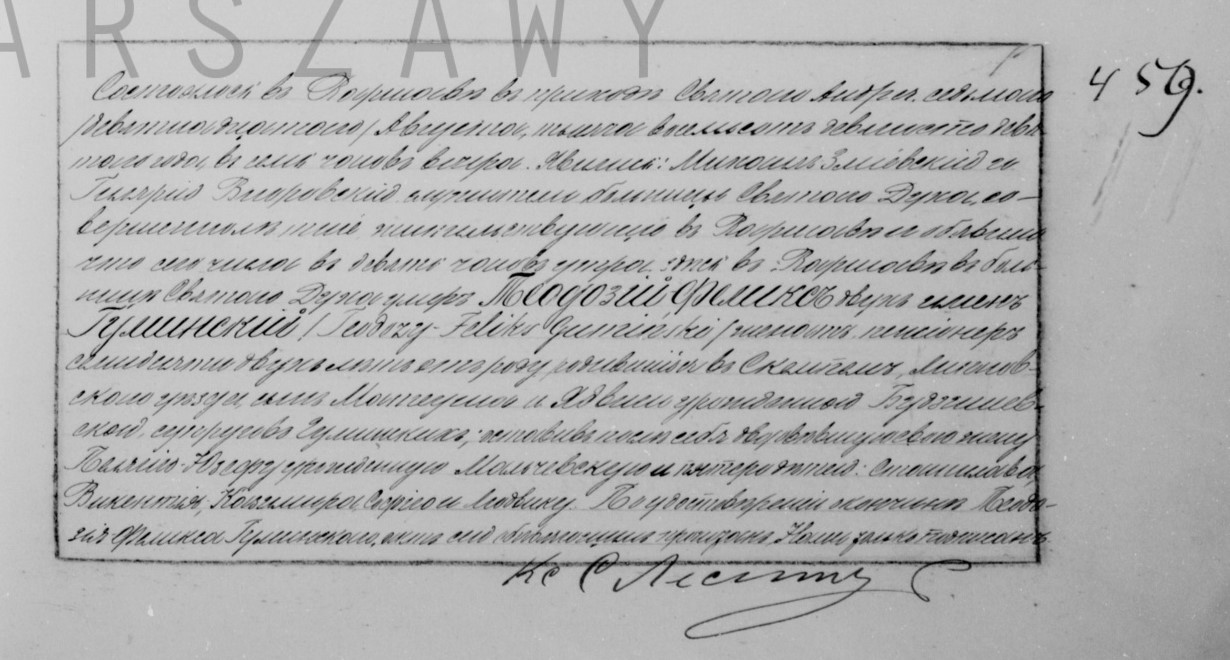 ARSZAWY
459.
Состоялось въ Варшавѣ въ приходѣ Святаго Андрея седьмаго
/девятнадцатаго/ Августа, тысяча восемьсотъ девяносто девя-
таго года, въ семь часовъ вечера. Явились: Михаилъ и
служители больницы Святаго Духа, со-
вершеннолѣтніе, жительствующіе въ Варшавѣ и объявили
что сего числа въ девять часовъ утра, здѣсь въ Варшавѣ въ боль-
ницѣ Святаго Духа умеръ Теодозій Феликсъ двухъ именъ
Гуминскій /Teodozy-Feliks Gumiński/ пенсіонеръ
семидесяти двухъ лѣтъ отъ роду, родившійся въ
скаго уѣзда, сынъ Матеуша и Ядвиги урожденной
ской, супруговъ Гуминскихъ; оставивъ послѣ себя овдовѣвшую свою жену
урожденную Мальчевскую и пятеро дѣтей: Станислава,
Викентія, Казимира, Софію и Людвику. По удостовѣреніи кончины Теодо-
зія Феликса Гуминскаго, актъ сей объявляющимъ прочитанъ Нами только подписанъ
Кс С